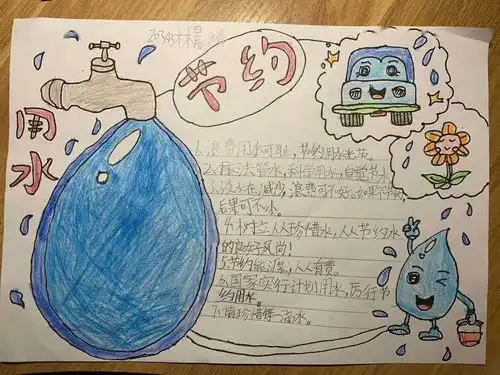 节约
用水
1.浪费用水可耻,节约用水光荣。
2.依法管水,科学用水,自觉节水
3.淡水在减少,浪费可不好,如果不节制,
后果可不小。
4.树立人人珍惜水,人人节约水
的良好风尚!
5.节约能源,人人有责。
6.国家实行计划用水,厉行节
约用水。
7.请珍惜每一滴水。